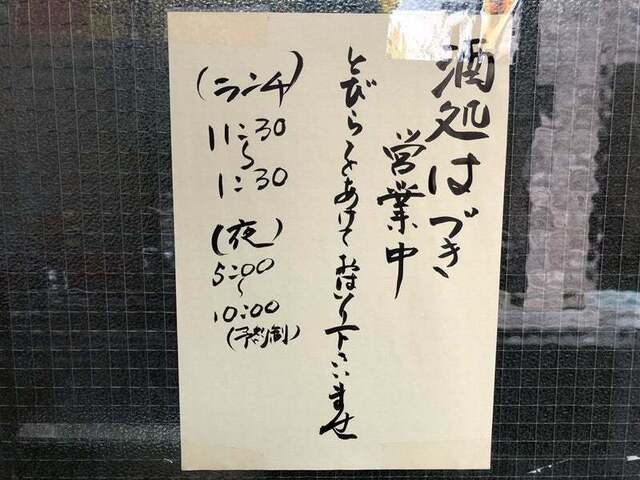 酒処はづき
営業中
とびらをあけておはいり下さいませ
(ランチ)
11:30
〜
1:30
(夜)
5:00
〜
10:00
(予約制)